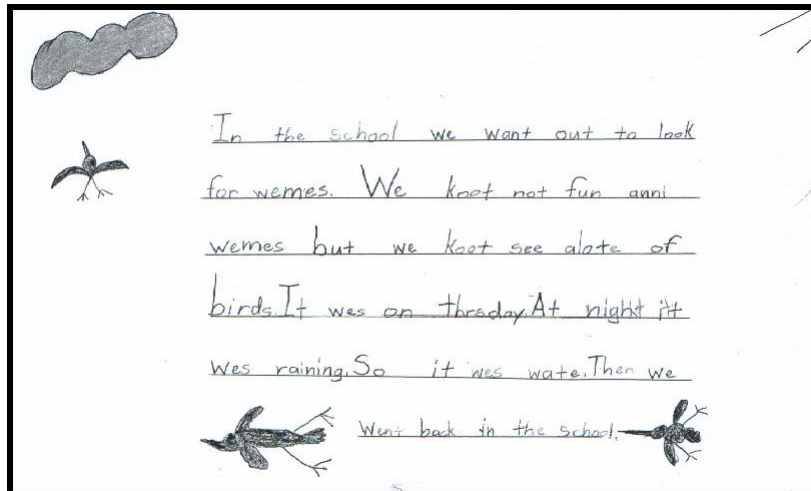 In the school we want out to look
for wemes. We koot not fun anni
wemes but we koot see alote of
birds. It wes on thrsday. At night it
wes raining. So it wes wate. Then we
went back in the school.